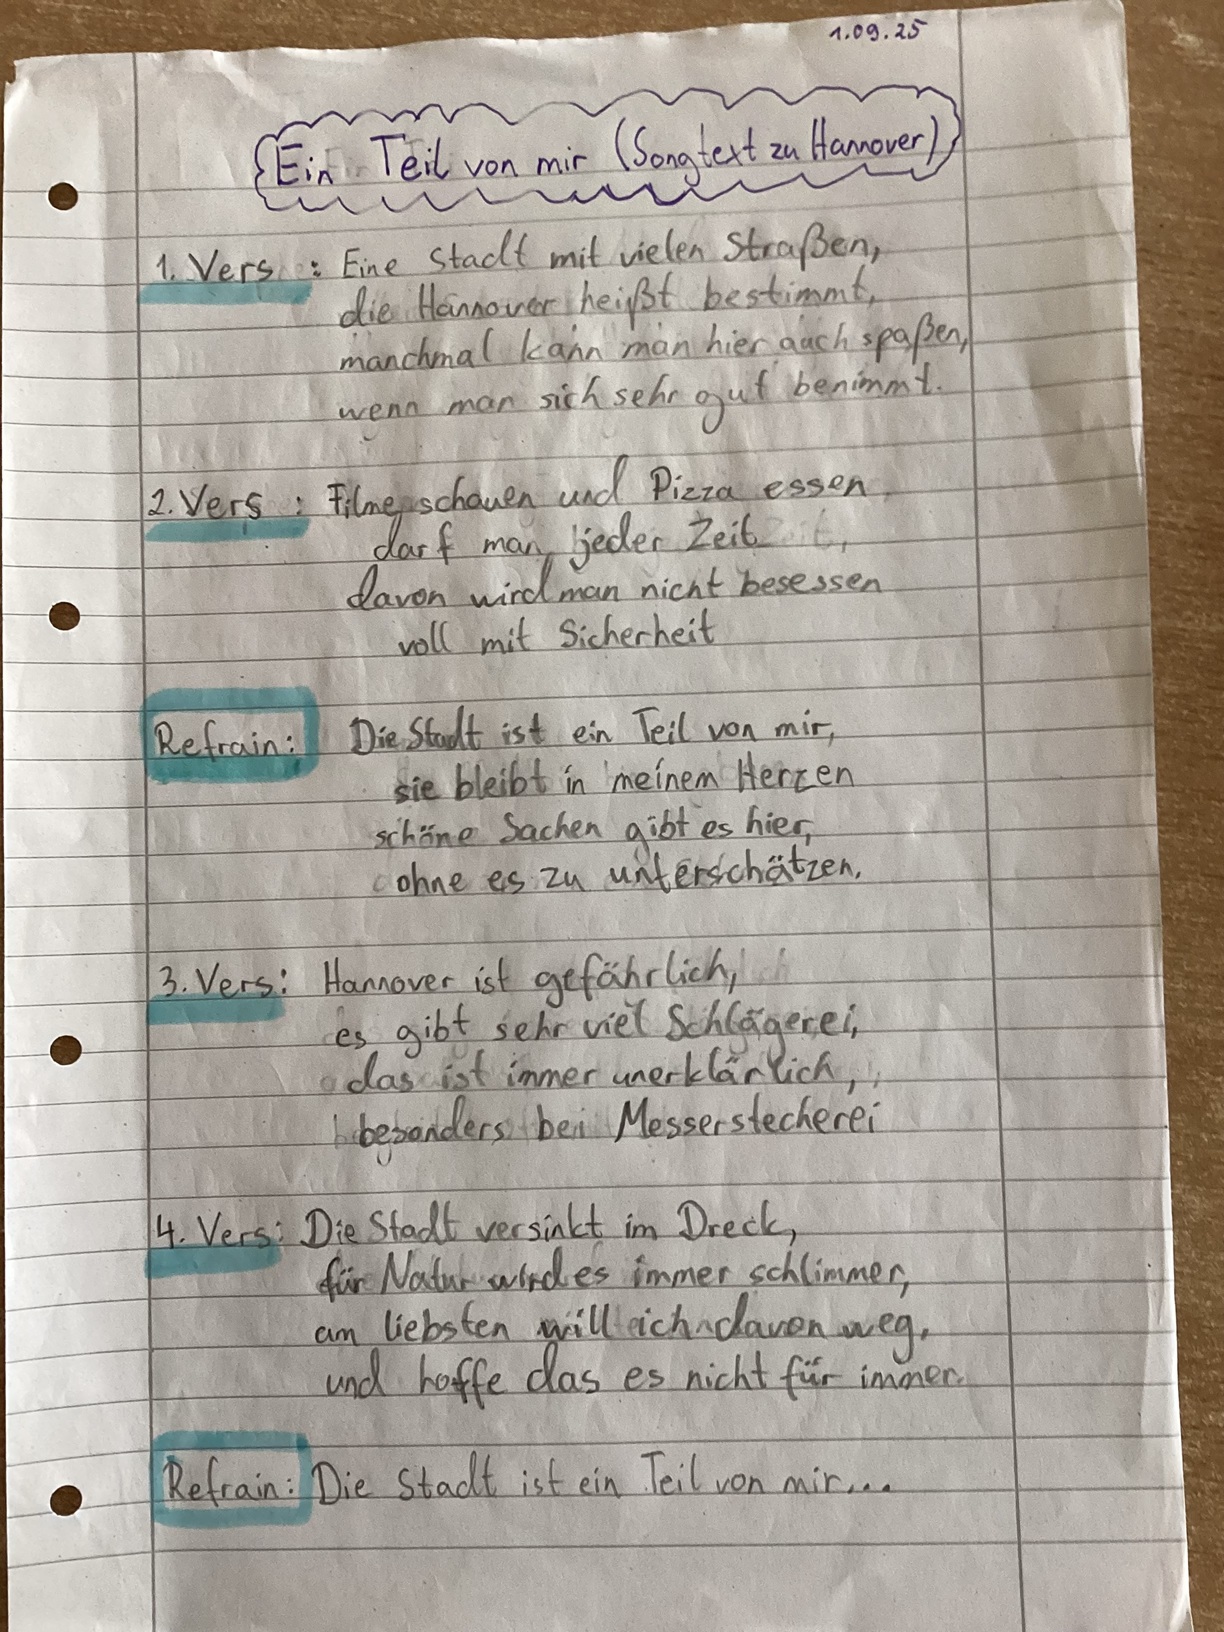 1.09.25
Ein Teil von mir (Songtext zu Hannover)
1. Vers : Eine Stadt mit vielen Straßen,
die Hannover heißt bestimmt,
manchmal kann man hier auch spaßen,
wenn man sich sehr gut benimmt.
2. Vers : Filme schauen und Pizza essen
darf man jeder Zeit
davon wird man nicht besessen
voll mit Sicherheit
Refrain: Die Stadt ist ein Teil von mir,
sie bleibt in meinem Herzen
schöne Sachen gibt es hier,
ohne es zu unterschätzen.
3. Vers: Hannover ist gefährlich,
es gibt sehr viel Schlägerei,
das ist immer unerklärlich,
besonders bei Messerstecherei
4. Vers: Die Stadt versinkt im Dreck,
für Natur wird es immer schlimmer,
am liebsten will ich davon weg,
und hoffe das es nicht für immer.
Refrain: Die Stadt ist ein Teil von mir...